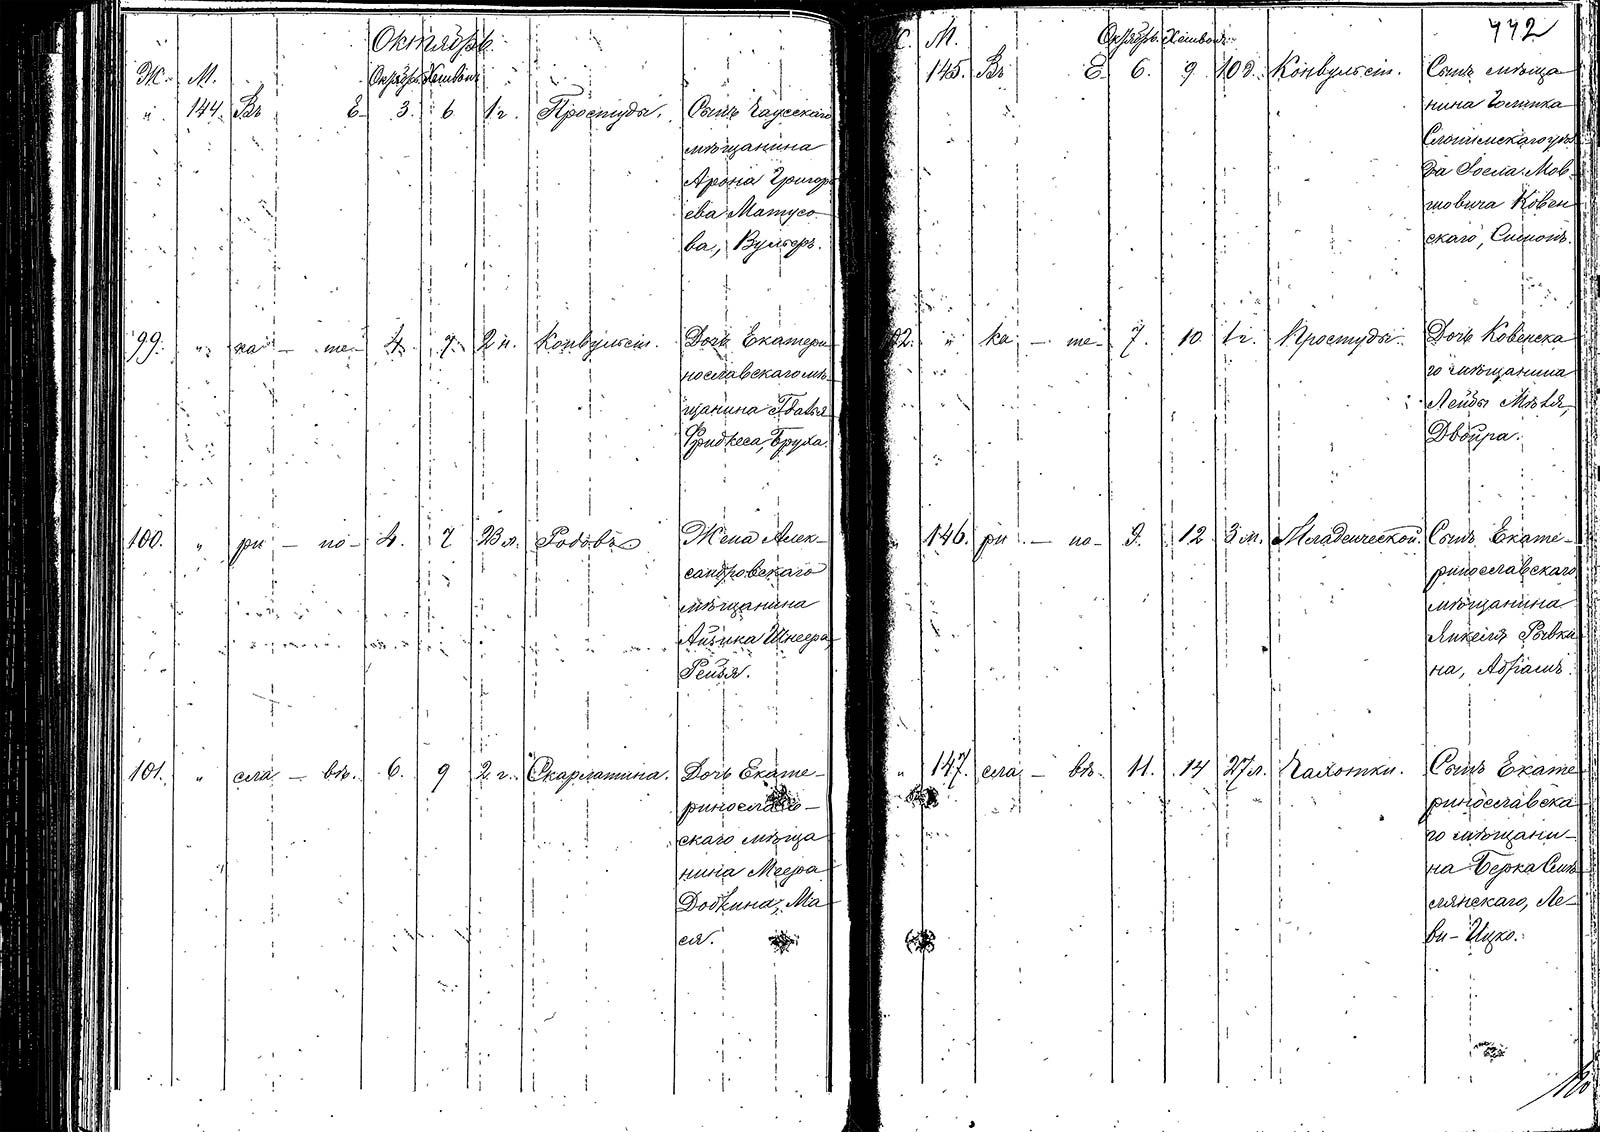 Октябрь
Ж. М. Октябрь. Хешвонъ
" 144. Въ Е- 3. 6 1 г. Простуды. Сынъ Чаусскаго
мѣщанина
Арона Григорь
ева Матусо
ва, Вульфъ.
99. " ка — те- 4. 7. 2 н. Конвульсіи. Дочь Екатери
нославскаго мѣ
щанина
Фридкеса, Бруха.
100. " ри — но- 4. 7 23 л. Родовъ Жена Алек-
сандровскаго
мѣщанина
Айзика Шнеера,
Рейзя.
101. " сла — вѣ. 6. 9 2 г. Скарлатина. Дочь Екате-
ринослав-
скаго мѣща
нина Меера
Добкина, Ма
ся.
442
Ж. М. Октябрь. Хешвонъ
145. Въ Е 6. 9 10 д. Конвульсіи. Сынъ мѣща
нина
Слонимскаго уѣз
да Іосла Мов-
шовича Ковен
скаго, Симонъ.
102. " ка — те- 7. 10. 1 г. Простуды. Дочь Ковенска
го мѣщанина
Лейбы
Двойра.
" 146. ри — но- 9. 12 3 м. Младенческой. Сынъ Екате-
ринославскаго
мѣщанина
Янкеля Рывки
на, Абрамъ.
" 147. сла — вѣ. 11. 14 27 л. Чахотки. Сынъ Екате
ринославска
го мѣщани-
на Берка
слянскаго, Ле-
ви-Ицко.